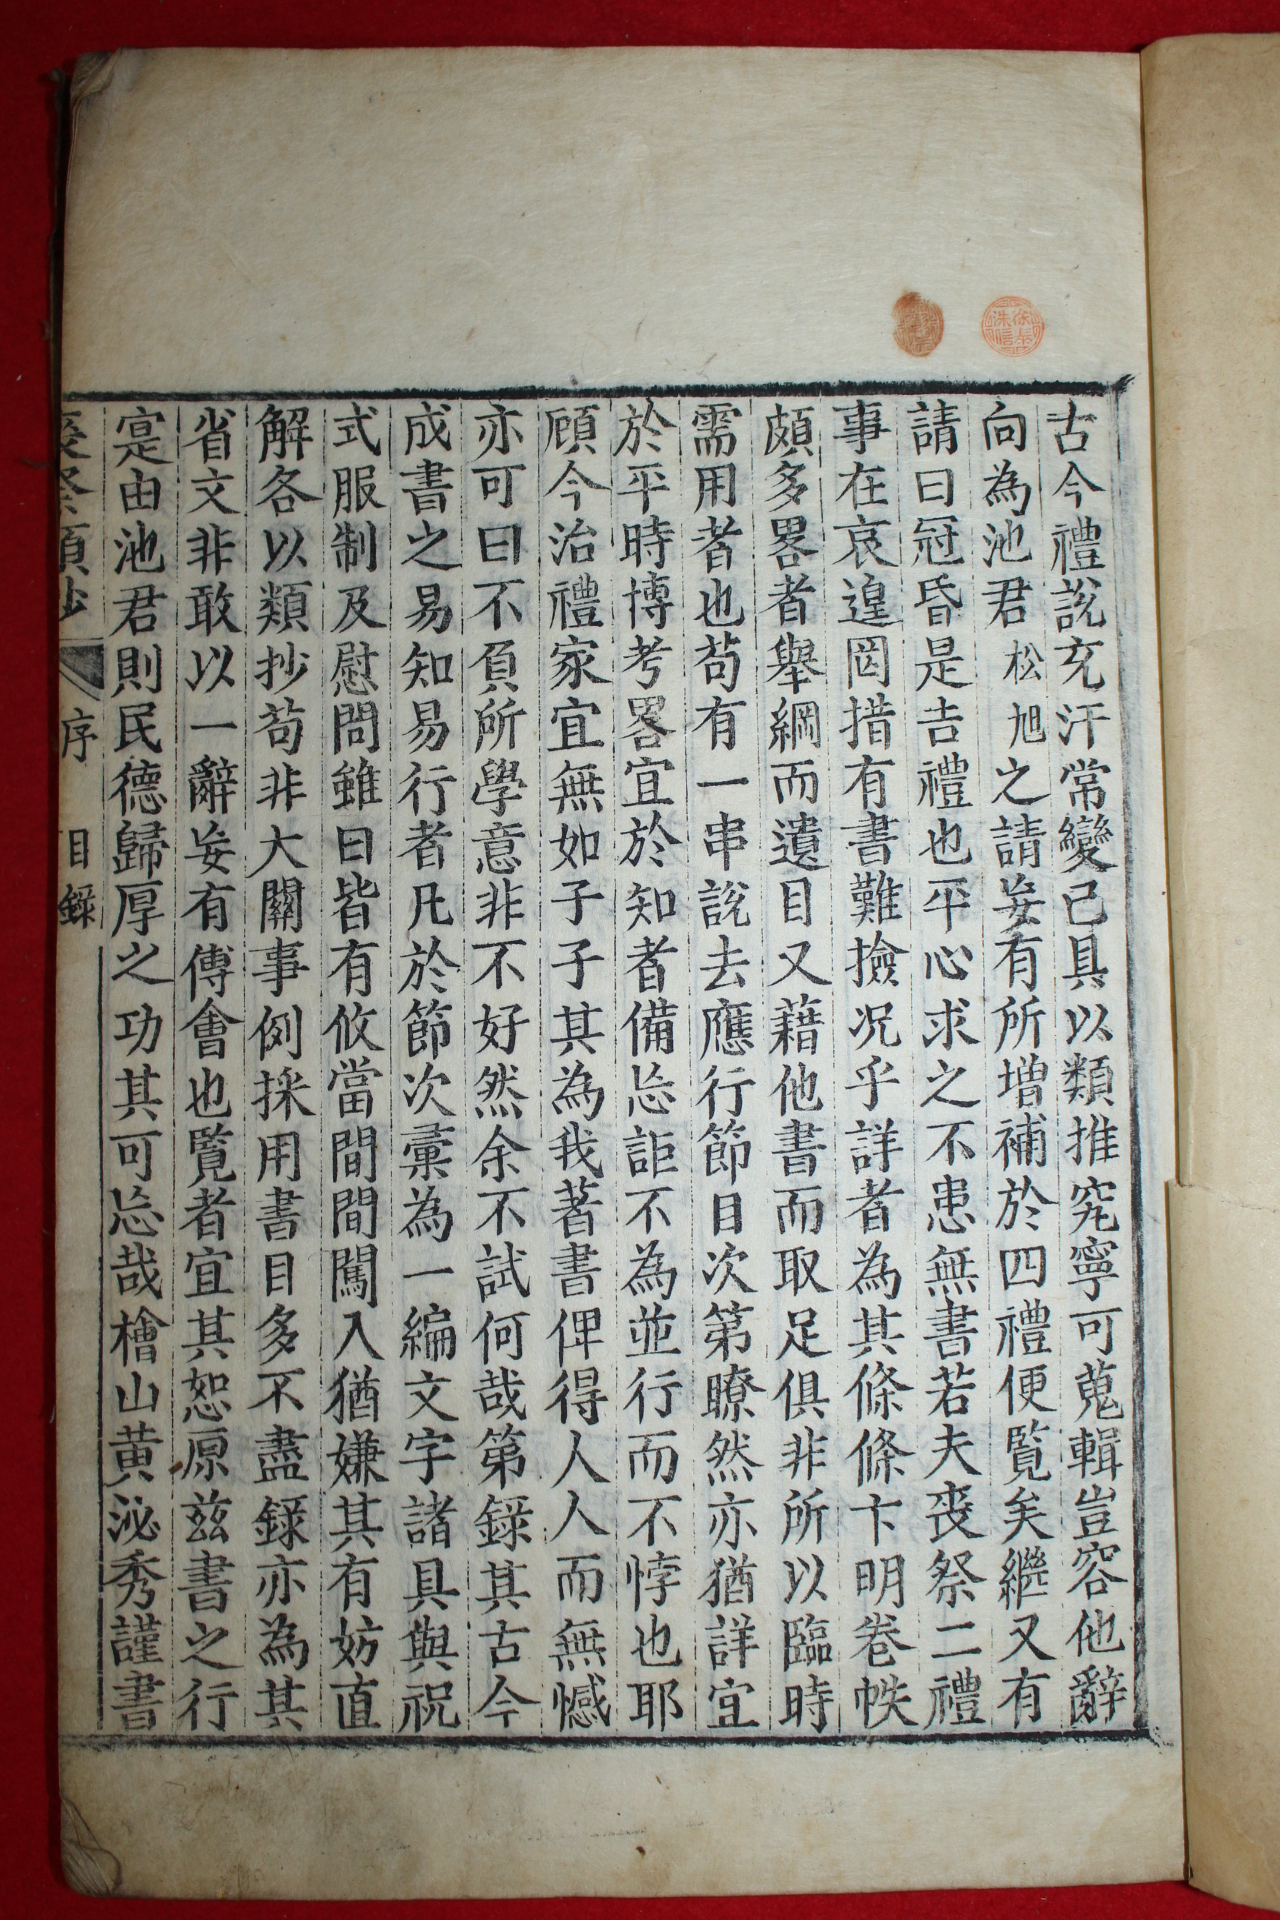 古今禮說充汗常變已具以類推究寧可蒐輯豈容他辭
向為池君松旭之請妄有所增補於四禮便覽矣繼又有
請曰冠昏是吉禮也平心求之不患無書若夫喪祭二禮
事在哀遑罔措有書難撿况乎詳者為其條條卞明卷帙
頗多畧者舉綱而遺目又藉他書而取足俱非所以臨時
需用者也苟有一串說去應行節目次第瞭然亦猶詳宜
於平時博考畧宜於知者備忘詎不為並行而不悖也耶
顧今治禮家宜無如子子其為我著書俾得人人而無憾
亦可曰不負所學意非不好然余不試何哉第錄其古今
成書之易知易行者凡於節次彙為一編文字諸具與祝
式服制及慰問雖曰皆有攸當間間闖入猶嫌其有妨直
解各以類抄苟非大關事例採用書目多不盡錄亦為其
省文非敢以一辭妄有傅會也覽者宜其恕原茲書之行
寔由池君則民德歸厚之功其可忘哉檜山黄泌秀謹書
喪祭類抄 序 目錄